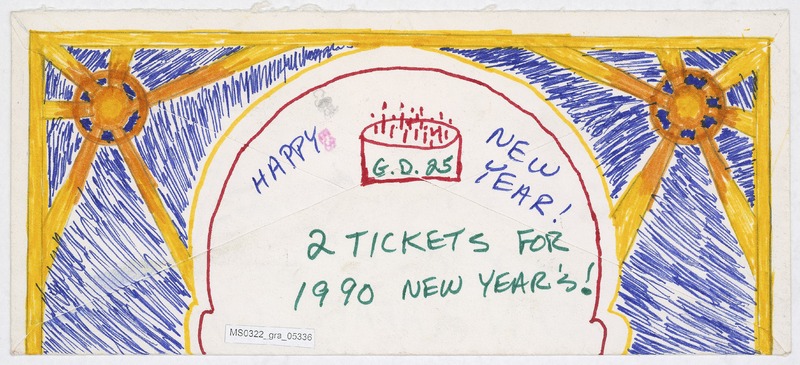 HAPPY
NEW
YEAR!
G.D. 25
2 TICKETS FOR
1990 NEW YEAR'S!
MS0322_gra_05336